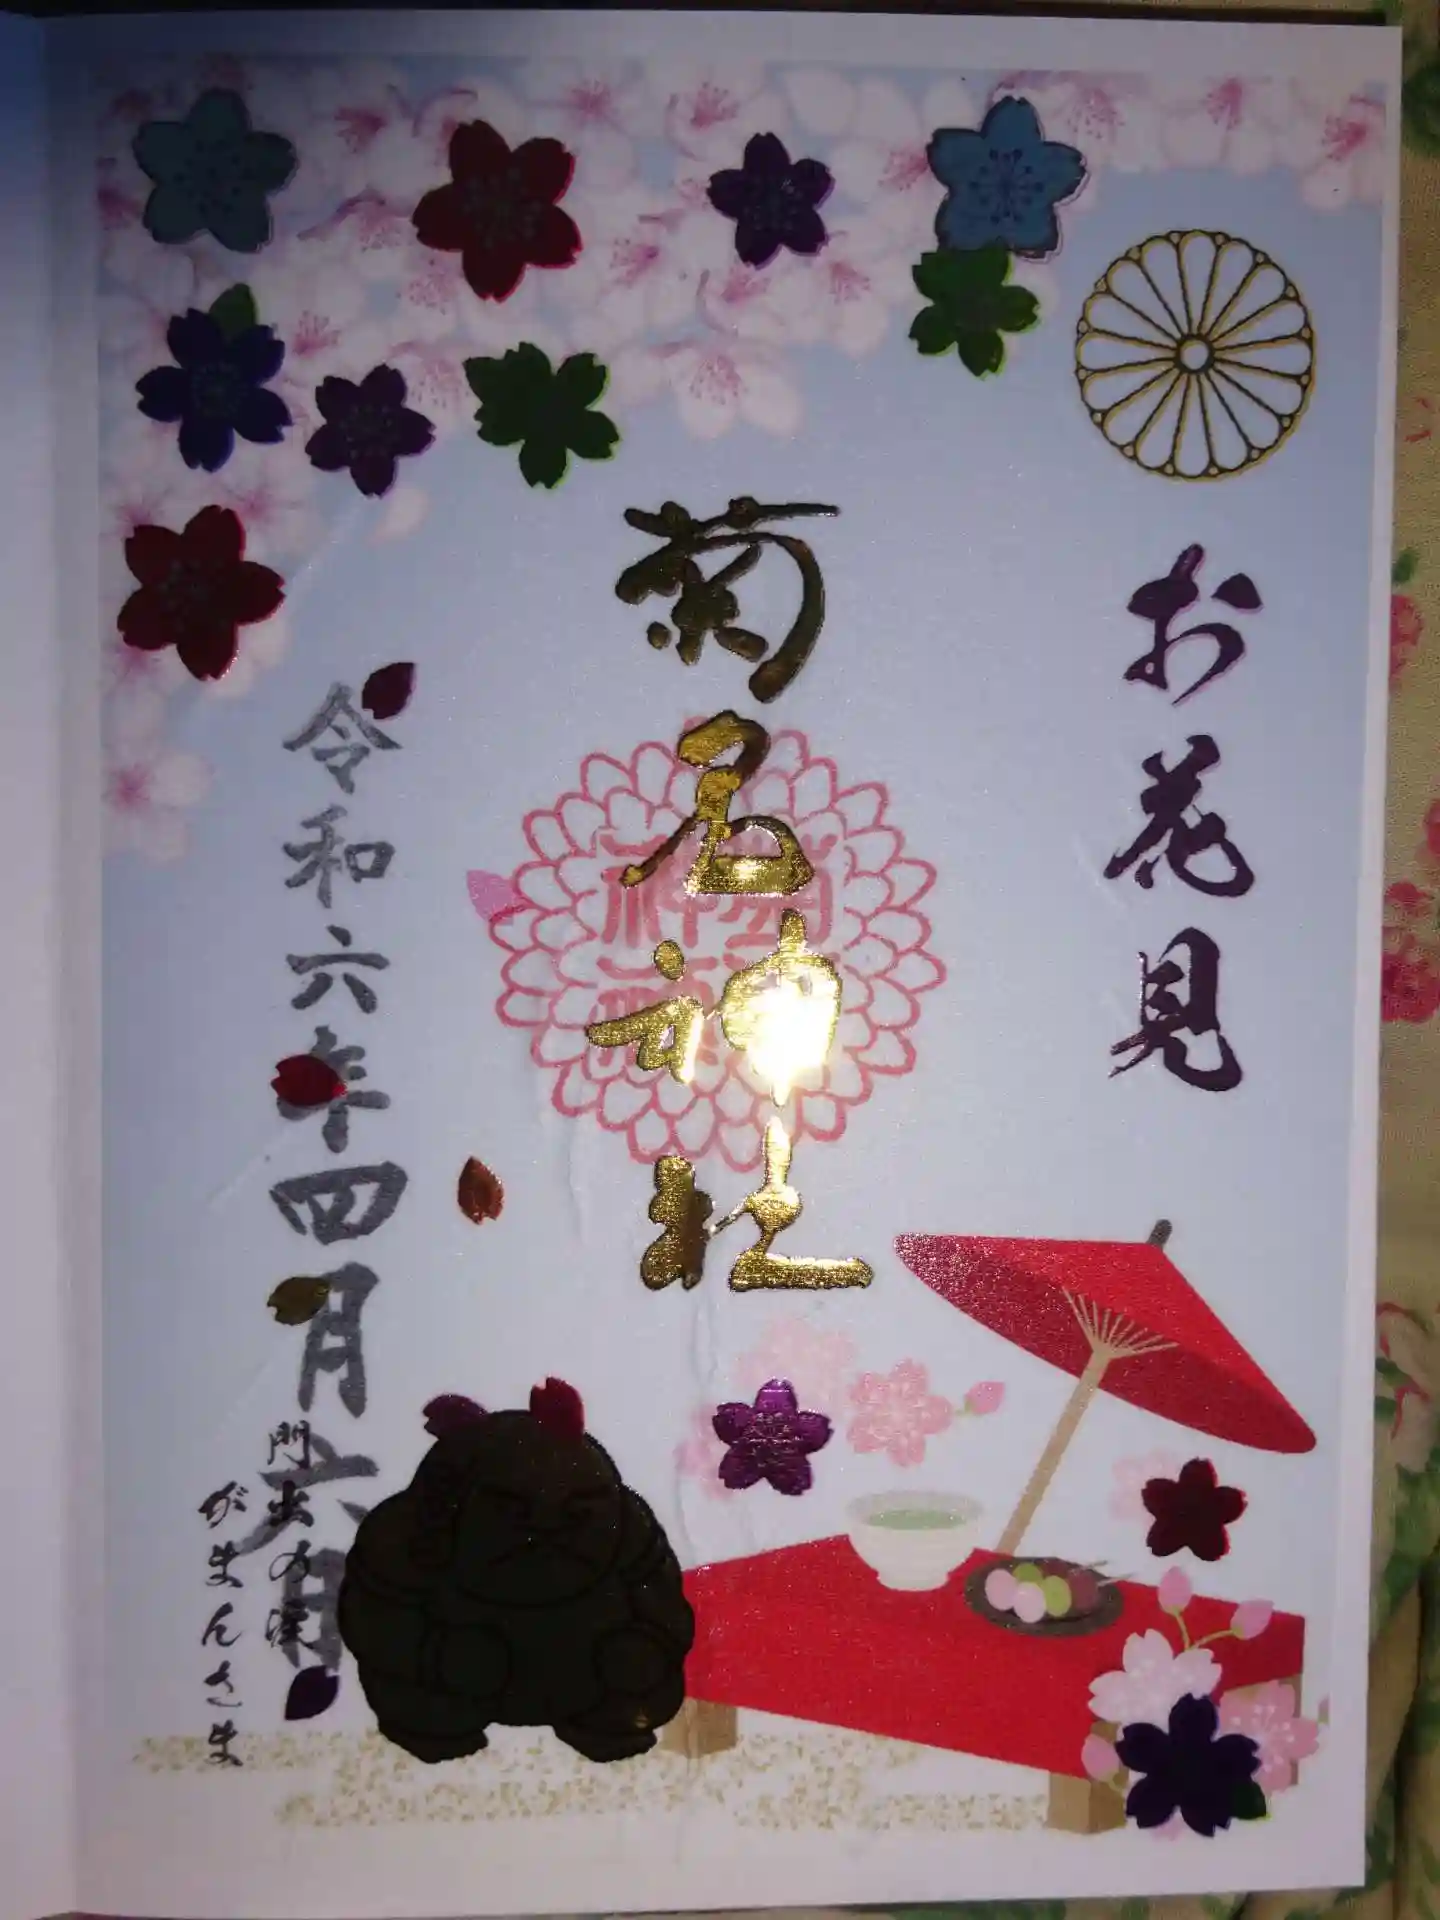 お花見
菊名神社
令和六年四月六日
門出の渓
がまんさま